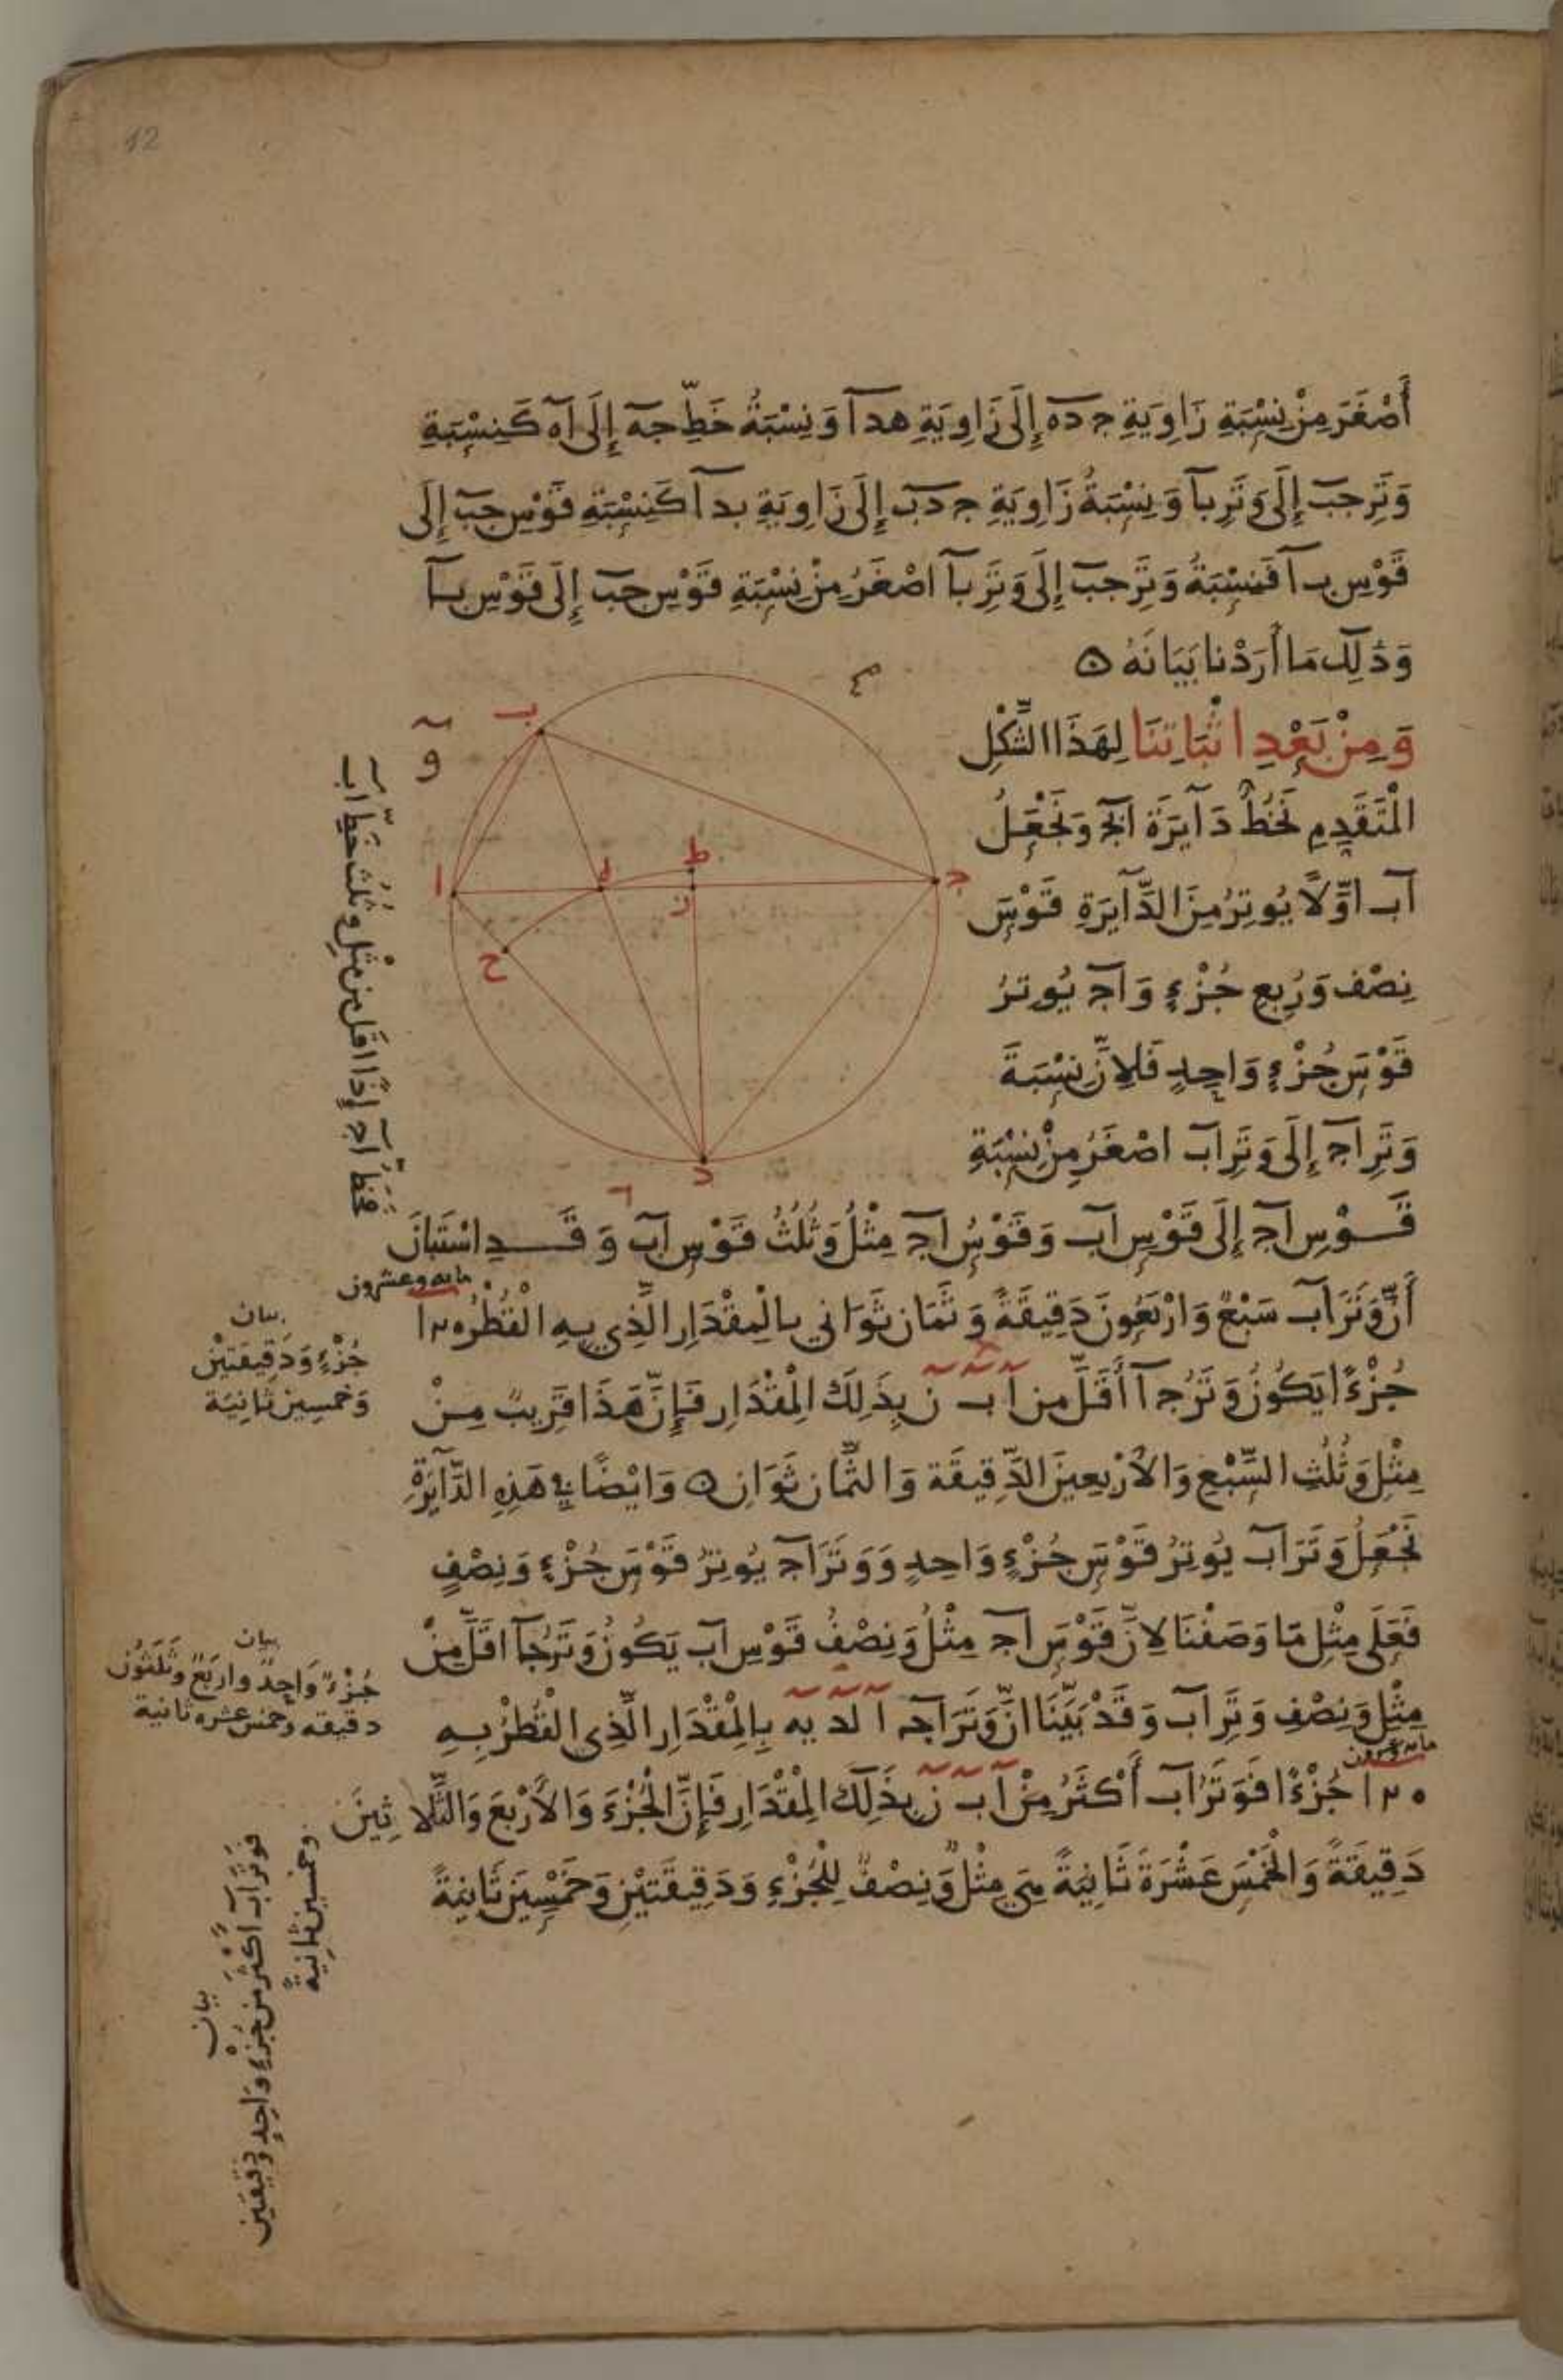 12
أَصْغَرَ مِنْ نِسْبَةِ زَاوِيَةِ جده إِلَى زَاوِيَةِ هدا وَنِسْبَةُ خَطِّ جه إِلَى اه كَنِسْبَةِ
وَتَرِ جب إِلَى وَتَرِ با وَنِسْبَةُ زَاوِيَةِ جدب إِلَى زَاوِيَةِ بدا كَنِسْبَةِ قَوْسِ جب إِلَى
قَوْسِ با فَنِسْبَةُ وَتَرِ جب إِلَى وَتَرِ با اصْغَرُ مِنْ نِسْبَةِ قَوْسِ جب إِلَى قَوْسِ با
وَذَلِك مَا أَرَدْنا بَيَانَهُ ه
وَمِنْ بَعْدِ اثْبَاتِنَا لِهَذَا الشَّكْلِ
الْمتَقَدِمِ نَخُطُّ دَآيرَةَ ابج وَنَجْعَلُ
اب اوَّلاً يُوتِرُ مِنَ الدَّآيَرةِ قَوْسَ
نِصْف وَرُبعِ جُزْءٍ وَاج يُوتِرُ
قَوْسَ جُزْءٍ وَاحِدٍ فَلِانَّ نِسْبَةَ
وَتَرِ اج إِلَى وَتَرِ اب اصْغَرُ مِنْ نِسْبَةِ
قَوْسِ اج إِلَى قَوْسِ اب وَقَوْسُ اج مِثْلُ وَثُلُثُ قَوْسِ اب وَقَدِ اسْتَبَانَ
أَنَّ وَتَرَ اب سَبْعٌ وَارْبَعُونَ دَقِيقَةً وَثَمَان ثَوَاني بالْمِقْدَارِ الَّذِي بِهِ الْقُطْرُ ١٢٠
جُزْءًا يَكُونُ وَتَرُ جا أَقَلَّ من ا ب ن بِذَلِكَ الْمِقْدَارِ فَإِنَّ هَذَا قَرِيبٌ مِنْ
مِثْلِ وَثُلُثِ السَّبْعِ وَالأَرْبعِينَ الدَّقِيقَة وَالثَّمان ثَوَانِ ه وَايْضًا فِي هَذِهِ الدَّآيَرةِ
نَجْعَلُ وَتَرَ اب يُوتِرُ قَوْسَ جُزْءٍ وَاحِدٍ وَوَتَرَ اج يُوتِرُ قَوْسَ جُزْءٍ وَنِصْفٍ
فَعَلَى مِثْلِ مَا وَصَفْنَا لانَّ قَوْسَ اج مِثْلُ وَنِصْفُ قَوْسِ اب يَكُونُ وَتَرُ جا اقَلَّ مِنْ
مِثْلِ وَنِصْفِ وَتَرِ اب وَقَدْ بَيَّنَا انَّ وَتَرَ اج ا لد يه بِالْمِقْدَارِ الَّذِى الْقُطْرُ بِهِ
١٢٠ جُزْءًا فَوَتَرُ اب أَكْثَرُ مِنْ ا ب ن بِذَلِكَ الْمِقْدَارِ فَإِنَّ الْجُزْءَ وَالأَرْبَعَ وَالثَّلاثِينَ
دَقِيقَةً وَالْخَمْسَ عَشْرَةَ ثَانِيَةً هِيَ مِثْلٌ وَنِصْفٌ لِلْجُزْءِ وَدَقِيقَتَيْنِ وَخَمْسِينَ ثَانِيَةً
و
ب
ا
ه
ط
ز
ج
ح
د
فخط اج إِذًا اقل من مِثْلِ وثُلُث خَطِّ اب
مايه وعشرون
بيان
جُزْءٍ وَدَقِيقَتَيْنْ
وَخمسِين ثانِيَة
بيان
جُزْءٌ وَاحِدٌ واربَعٌ وثَلَثُون
دقيقه وخمس عشره ثانية
مايه وعشرون
بيان
فَوَتَرُ اب أَكْثَرُ من جُزْءٍ وَاحِدٍ ودقِيقَتين
وخمسين ثانِيةً